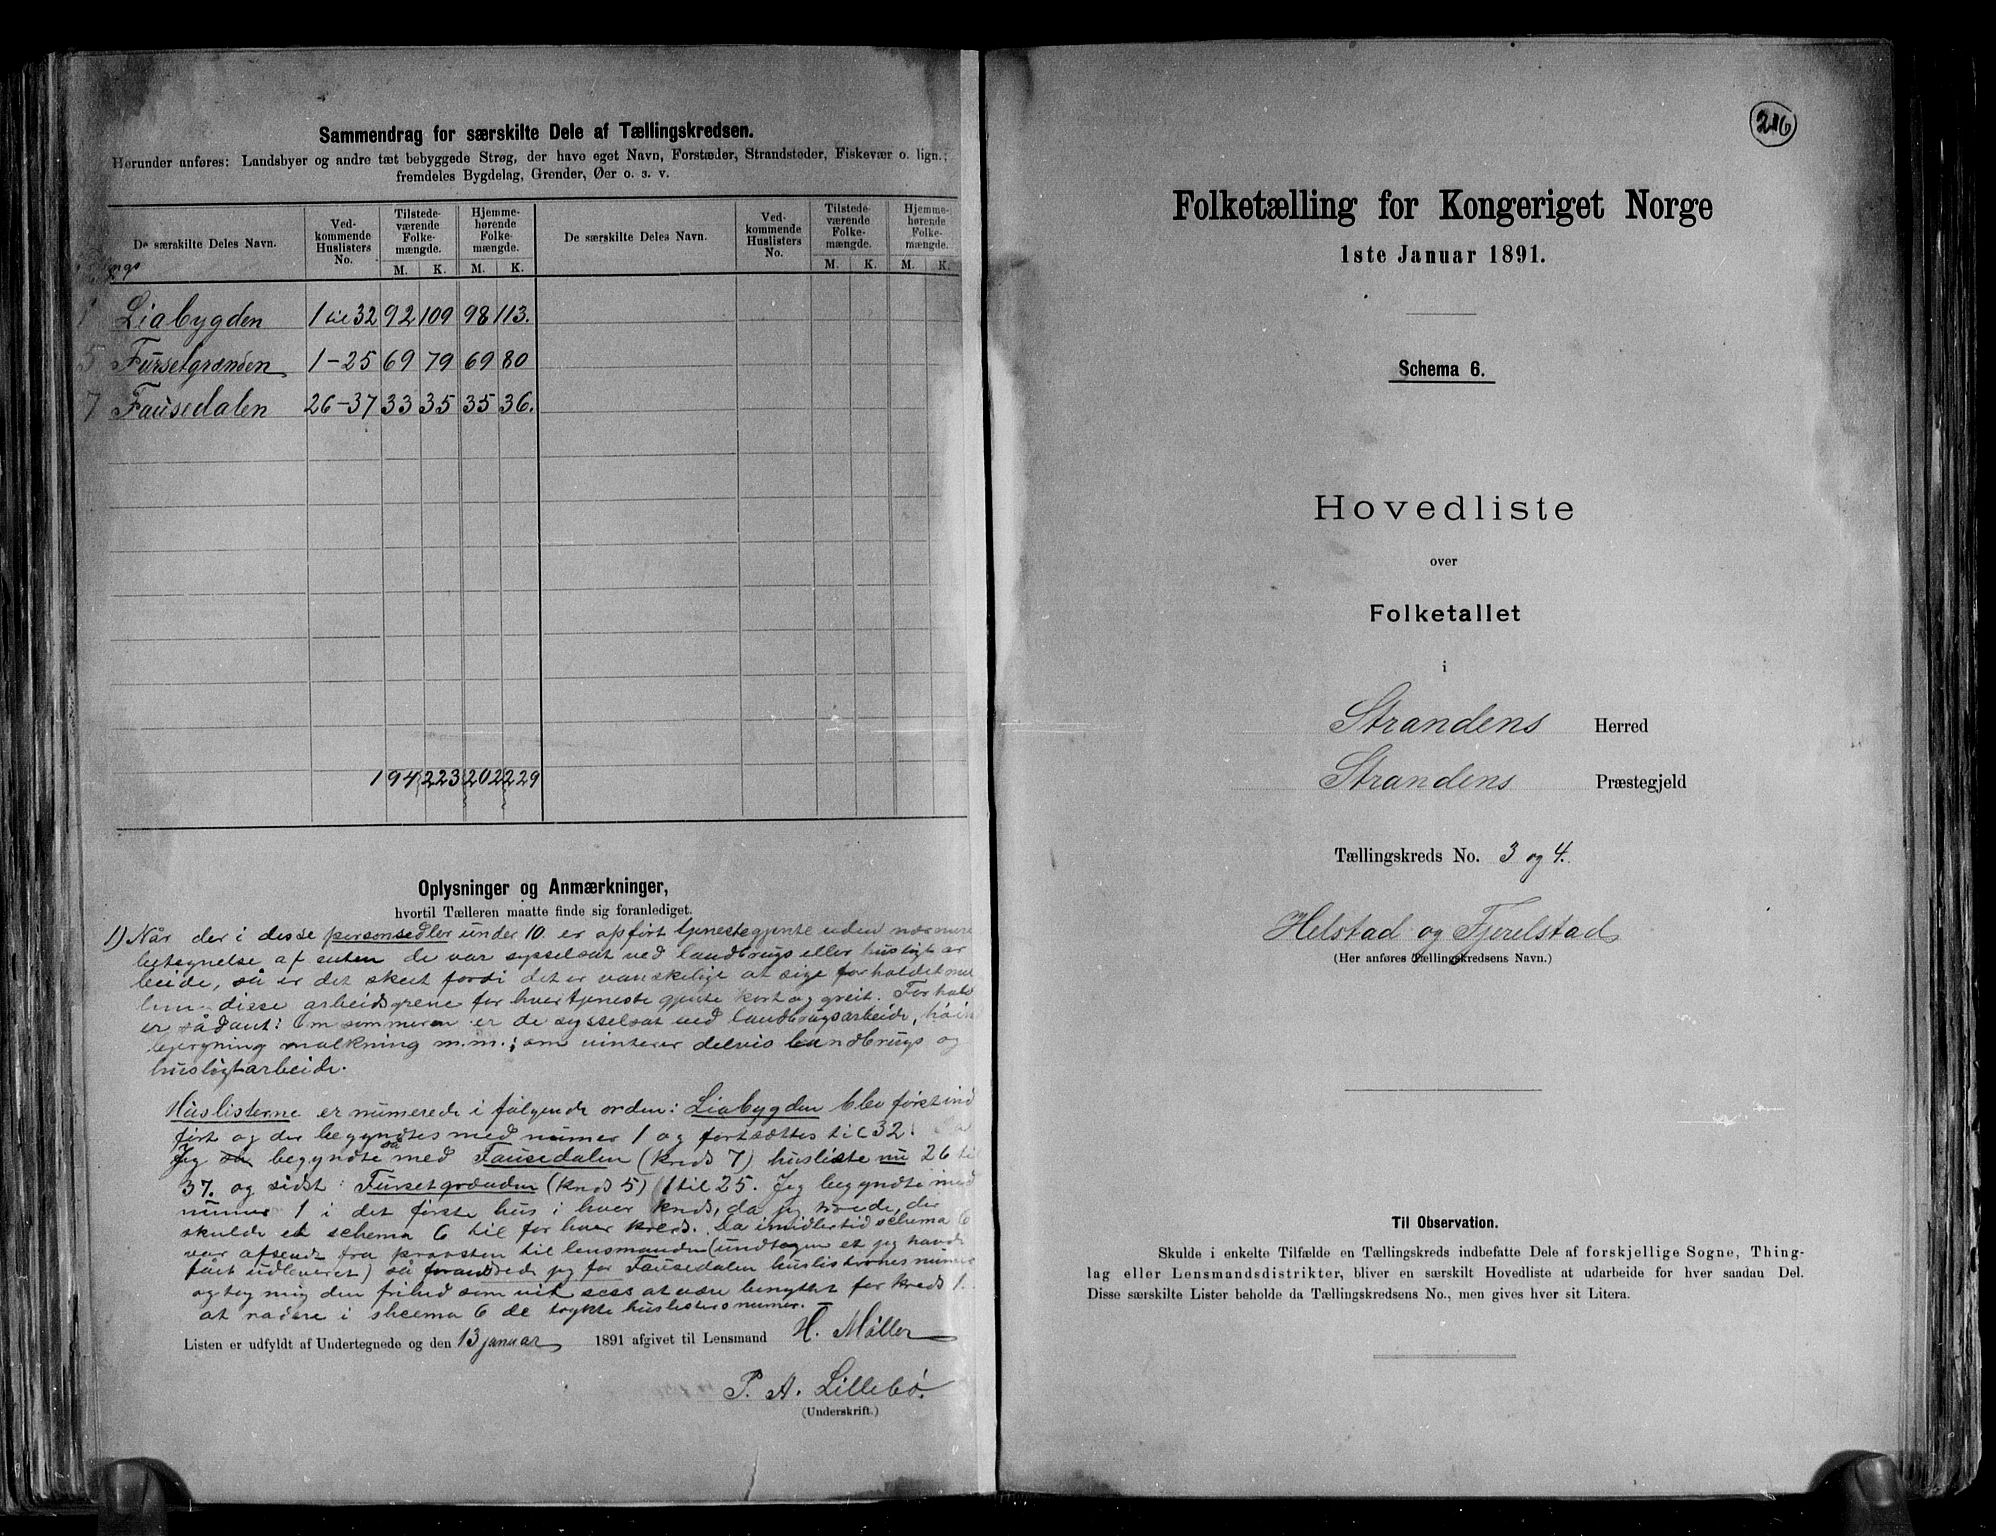 Sammendrag for særskilte Dele af Tællingskredsen.
Herunder anføres: Landsbyer og andre tæt bebyggede Strøg, der have eget Navn, Forstæder, Strandsteder, Fiskevær o. lign.;
fremdeles Bygdelag, Grender, Øer o. s. v.
De særskilte Deles Navn. Ved-kommende Huslisters No. Tilstede-værende Folke-mængde. M. K. Hjemme-hørende Folke-mængde. M. K. De særskilte Deles Navn. Ved-kommende Huslisters No. Tilstede-værende Folke-mængde. M. K. Hjemme-hørende Folke-mængde. M. K.
1 Liabygden 1 til 32 92 109 98 113.
5 Fursetgrænden 1-25 69 79 69 80
7 Fausedalen 26-37 33 35 35 36.
194 223 202 229
Oplysninger og Anmærkninger,
hvortil Tælleren maatte finde sig foranlediget.
1) Når der i disse personsedler under 10. er opført tjenestegjente uden nærmere
betegnelse af enten de var sysselsat ved landbrugs eller husligt ar
beide, så er det skeet fordi det er vanskeligt at sige forholdet mel
lem disse arbeidsgrene for hver tjenestegjente kort og greit. Forhold
er sådant: Om sommeren er de sysselsat ved landbrugsarbeide, høi
bjergning malkning m.m.; om vinteren delvis landbrugs og
husligtarbeide.
Huslisterne er numerede i følgende orden: Liabygden blev først ind
ført og der begyndtes med numer 1 og fortsættes til 32.
Jeg så begyndte så med Fausedalen (kreds 7) husliste nu 26 til
37. og sidst: Fursetgrænden (kreds 5) 1 til 25. Jeg begyndte med
numer 1 i det første hus i hver kreds, da jeg troede, der
skulde et schema 6 til for hver kreds. Da imidlertid schema 6
var afsendt fra provsten til lensmanden (undtagen et jeg havde
fået udleveret) så forandrede jeg for Fausedalen huslisternes numer
og tog mig den frihed som vil sees at være benyttet for kreds 1.
at radere i skeema 6 de trykte huslisters numer.
Listen er udfyldt af Undertegnede og den 13 januar 1891 afgivet til Lensmand H. Møller
P. A. Lillebø.
(Underskrift.)
216
Folketælling for Kongeriget Norge
1ste Januar 1891.
Schema 6.
Hovedliste
over
Folketallet
i
Strandens Herred
Strandens Præstegjeld
Tællingskreds No. 3 og 4.
Helstad og Fjerelstad
(Her anføres Tællingskredsens Navn.)
Til Observation.
Skulde i enkelte Tilfælde en Tællingskreds indbefatte Dele af forskjellige Sogne, Thing-
lag eller Lensmandsdistrikter, bliver en særskilt Hovedliste at udarbeide for hver saadan Del.
Disse særskilte Lister beholde da Tællingskredsens No., men gives hver sit Litera.